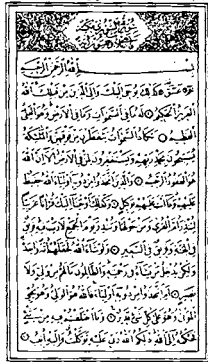 بسم الله الرحمن الرحيم
حم عسق كذلك يوحي إليك وإلى الذين من قبلك الله
العزيز الحكيم له ما في السموات وما في الأرض وهو العلي
العظيم تكاد السموات يتفطرن من فوقهن والملئكة
يسبحون بحمد ربهم ويستغفرون لمن في الأرض ألا إن الله
هو الغفور الرحيم والذين اتخذوا من دونه أولياء الله حفيظ
عليهم وما أنت عليهم بوكيل وكذلك أوحينا إليك قرآنا عربيا
لتنذر أم القرى ومن حولها وتنذر يوم الجمع لا ريب فيه فريق
في الجنة وفريق في السعير ولو شاء الله لجعلهم أمة واحدة
ولكن يدخل من يشاء في رحمته والظالمون ما لهم من ولي ولا
نصير أم اتخذوا من دونه أولياء فالله هو الولي وهو يحيي
الموتى وهو على كل شيء قدير وما اختلفتم فيه من شيء
فحكمه إلى الله ذلكم الله ربي عليه توكلت وإليه أنيب